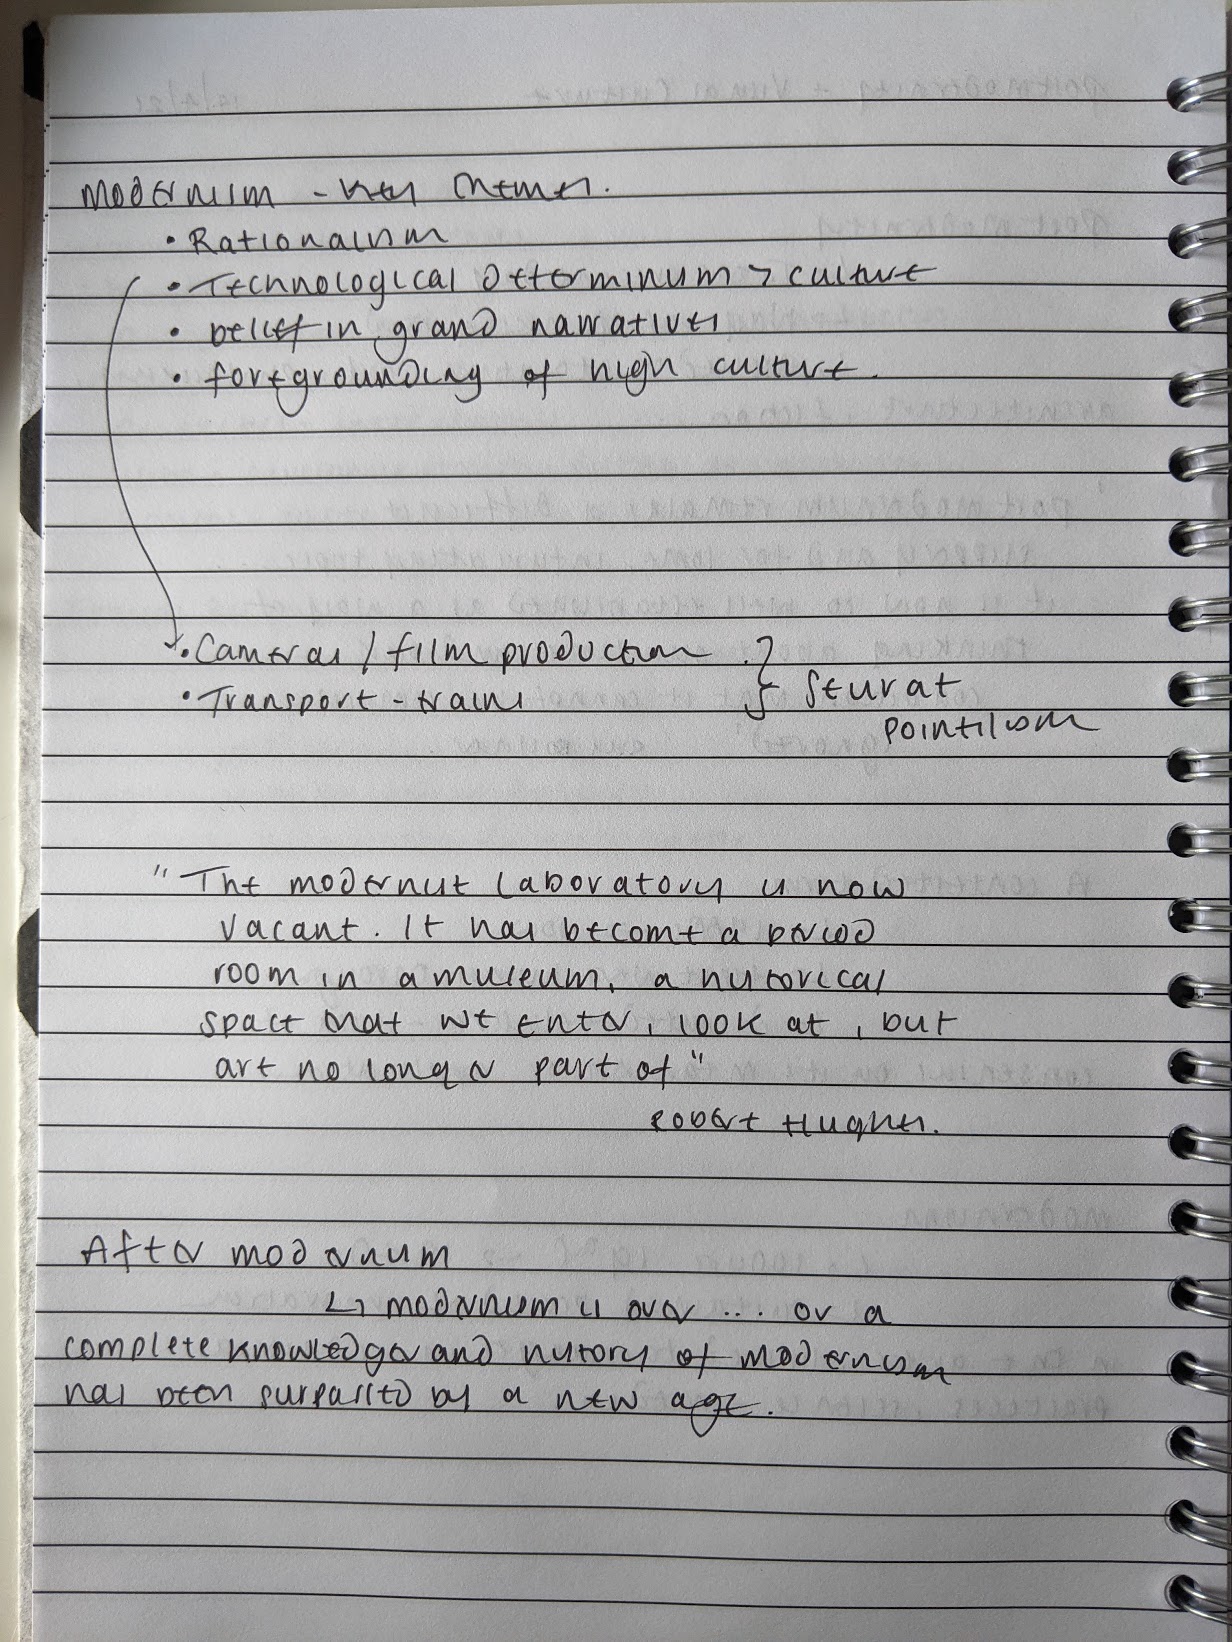 Modernism - key themes.
• Rationalism
• Technological determinism > culture
• belief in grand narratives
• foregrounding of high culture.
• Cameras / film production }
• Transport - trains } Seurat
pointilism
"The modernist laboratory is now
vacant. It has become a period
room in a museum, a historical
space that we enter, look at, but
art no longer part of"
Robert Hughes.
After modernism
↳ modernism is over ... or a
complete knowledge and history of modernism
has been surpassed by a new age.